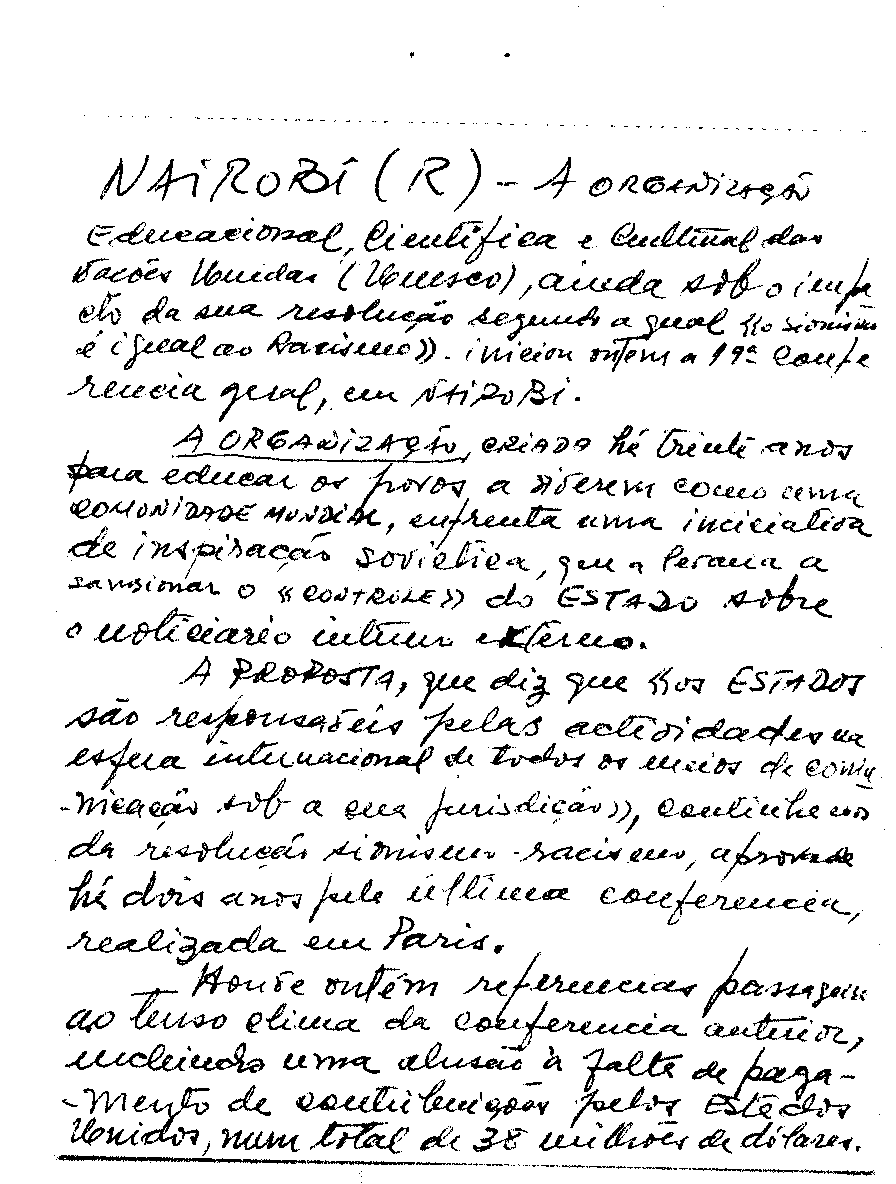 NAIROBI (R) - A ORGANIZAÇÃO
Educacional, Científica e Cultural das
Nações Unidas (Unesco), ainda sob o impa
cto da sua resolução segundo a qual «o sionismo
é igual ao Racismo». iniciou ontem a 19ª Confe
rencia geral, em NAIROBI.
A ORGANIZAÇÃO, CRIADA há trinta anos
para educar os povos a viverem como uma
COMUNIDADE MUNDIAL, enfrenta uma iniciativa
de inspiração sovietica, que a levaria a
sansionar o «CONTROLE» do ESTADO sobre
o noticiario interno externo.
A PROPOSTA, que diz que «os ESTADOS
são responsaveis pelas actividades na
esfera internacional de todos os meios de comu
-nicação sob a sua jurisdição»,
da resolução sionismo-racismo, aprovada
há dois anos pela última conferencia,
realizada em Paris.
Houve ontém referencias passageiras
ao tenso clima da conferencia anterior,
incluindo uma alusão à falta de paga-
-mento de contribuições pelos Estados
Unidos, num total de 38 milhões de dólares.